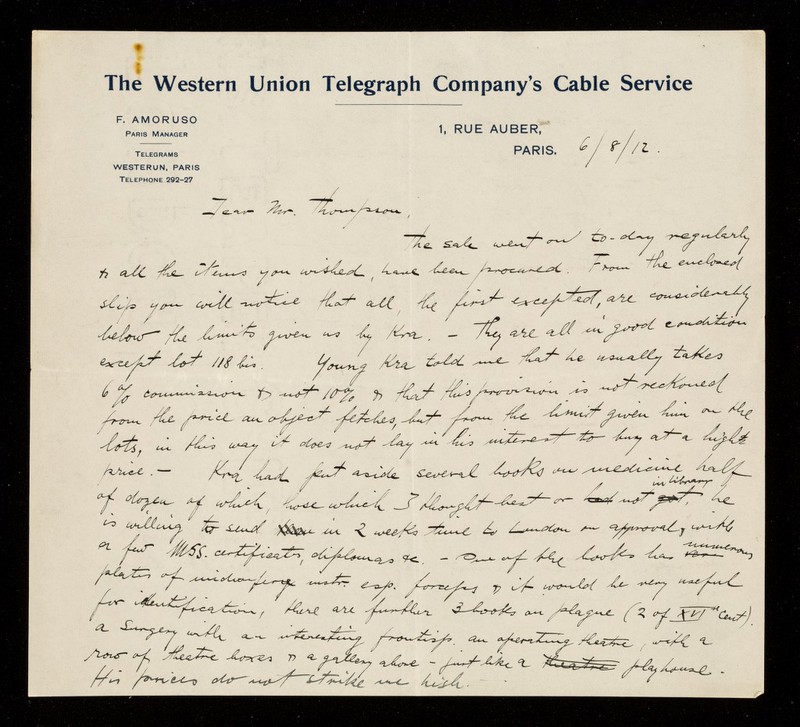 The Western Union Telegraph Company's Cable Service
F. AMORUSO
PARIS MANAGER
TELEGRAMS
WESTERUN, PARIS
TELEPHONE 292-27
1, RUE AUBER,
PARIS. 6/8/12.
Dear Mr. Thompson,
The sale went on to-day regularly
& all the items you wished, have been procured. From the enclosed
slip you will notice that all, the first excepted, are considerably
below the limits given us by Kra. - They are all in good condition
except lot 118 bis. Young Kra told me that he usually takes
6% commission & not 10% & that this provision is not reckoned
from the price an object fetches, but from the limit given him on the
lots, in this way it does not lay in his interest to buy at a high
price. - Kra had put aside several books on medicine half
of dozen of which, those which I thought best or had not got in library, he
is willing to send in 2 weeks time to London on approval, with
a few MSS. certificates, diplomas &c. - One of the books has numerous
plates of midwifery instr. esp. forceps & it would be very useful
for identification, there are further 3 books on plague (2 of XVIth Cent).
a Surgery with an interesting frontisp. an operating theatre, with a
row of theatre boxes & a gallery above - just like a theatre playhouse.
His prices do not strike me high.